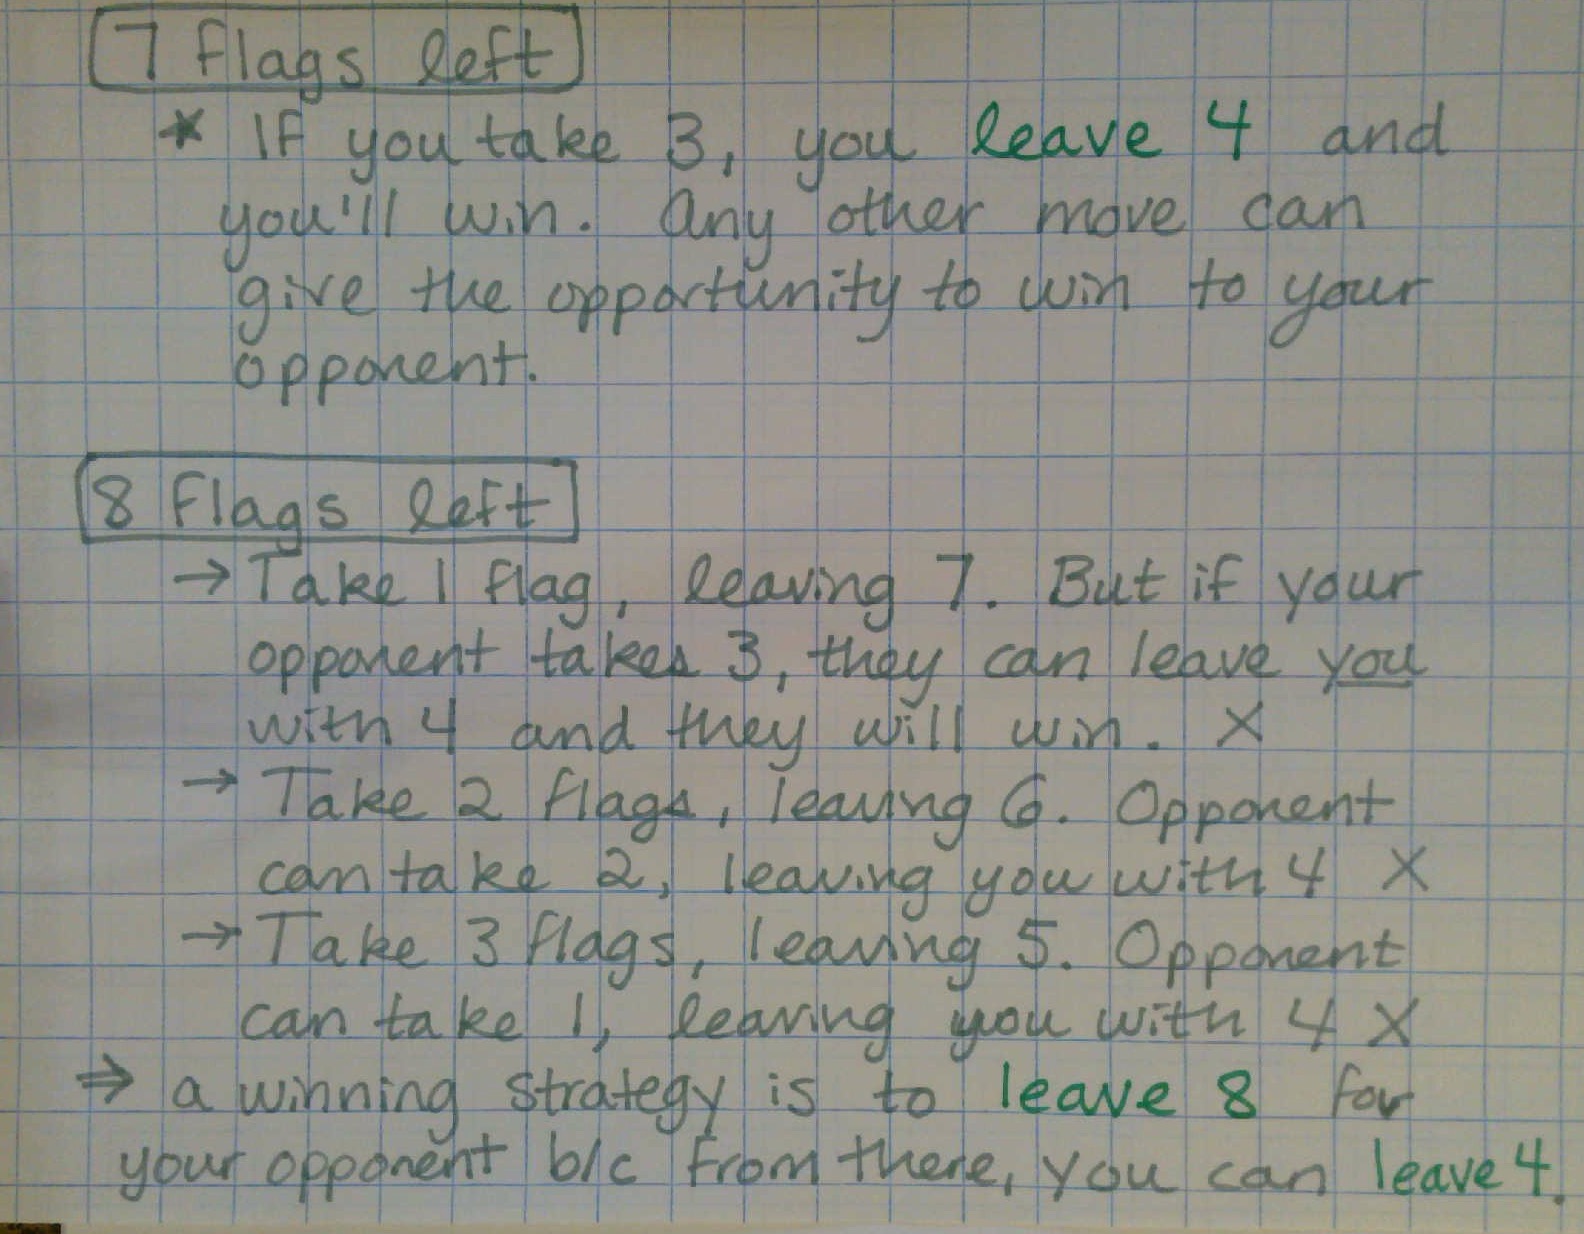 7 flags left
* If you take 3, you leave 4 and
you'll win. Any other move can
give the opportunity to win to your
opponent.
8 flags left
→ Take 1 flag, leaving 7. But if your
opponent takes 3, they can leave you
with 4 and they will win. X
→ Take 2 flags, leaving 6. Opponent
can take 2, leaving you with 4 X
→ Take 3 flags, leaving 5. Opponent
can take 1, leaving you with 4 X
⇒ a winning strategy is to leave 8 for
your opponent b/c from there, you can leave 4.